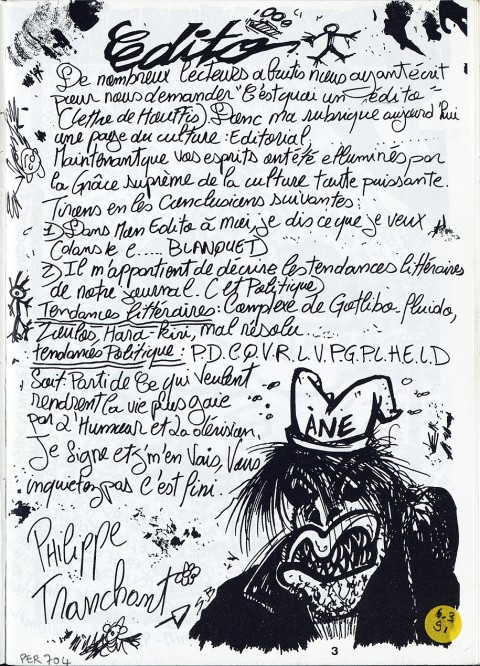 Edito
De nombreux lecteurs abrutis nous ayant écrit
pour nous demander "C'est quoi un édito"
(lettre de Hauttis) Donc ma rubrique aujourd'hui
une page du culture : Editorial,
Maintenant que vos esprits ont été elluminés par
la Grâce suprème de la culture toute puissante.
Tirons en les Conclusions suivantes :
1) Dans Mon Edito à moi, je dis ce que je veux
(dans le c..... BLANQUET)
2) Il m'appartient de décrire les tendances littéraires
de notre journal. (et Politique)
Tendances littéraires : Complexe de Gotlibo-fluido,
Zeulos, Hara-kiri, mal résolu
tendances Politique : P.D.C.Q.V.R.L.V.P.G.P.L.H.E.L.D
Soit : Parti de Ce qui Veulent
rendrent la vie plus gaie
par L'Humour et La dérision.
Je Signe et j'm'en Vais, Vous
inquietez pas c'est fini.
PHILIPPE
Tranchant
ANE
3
PER 704